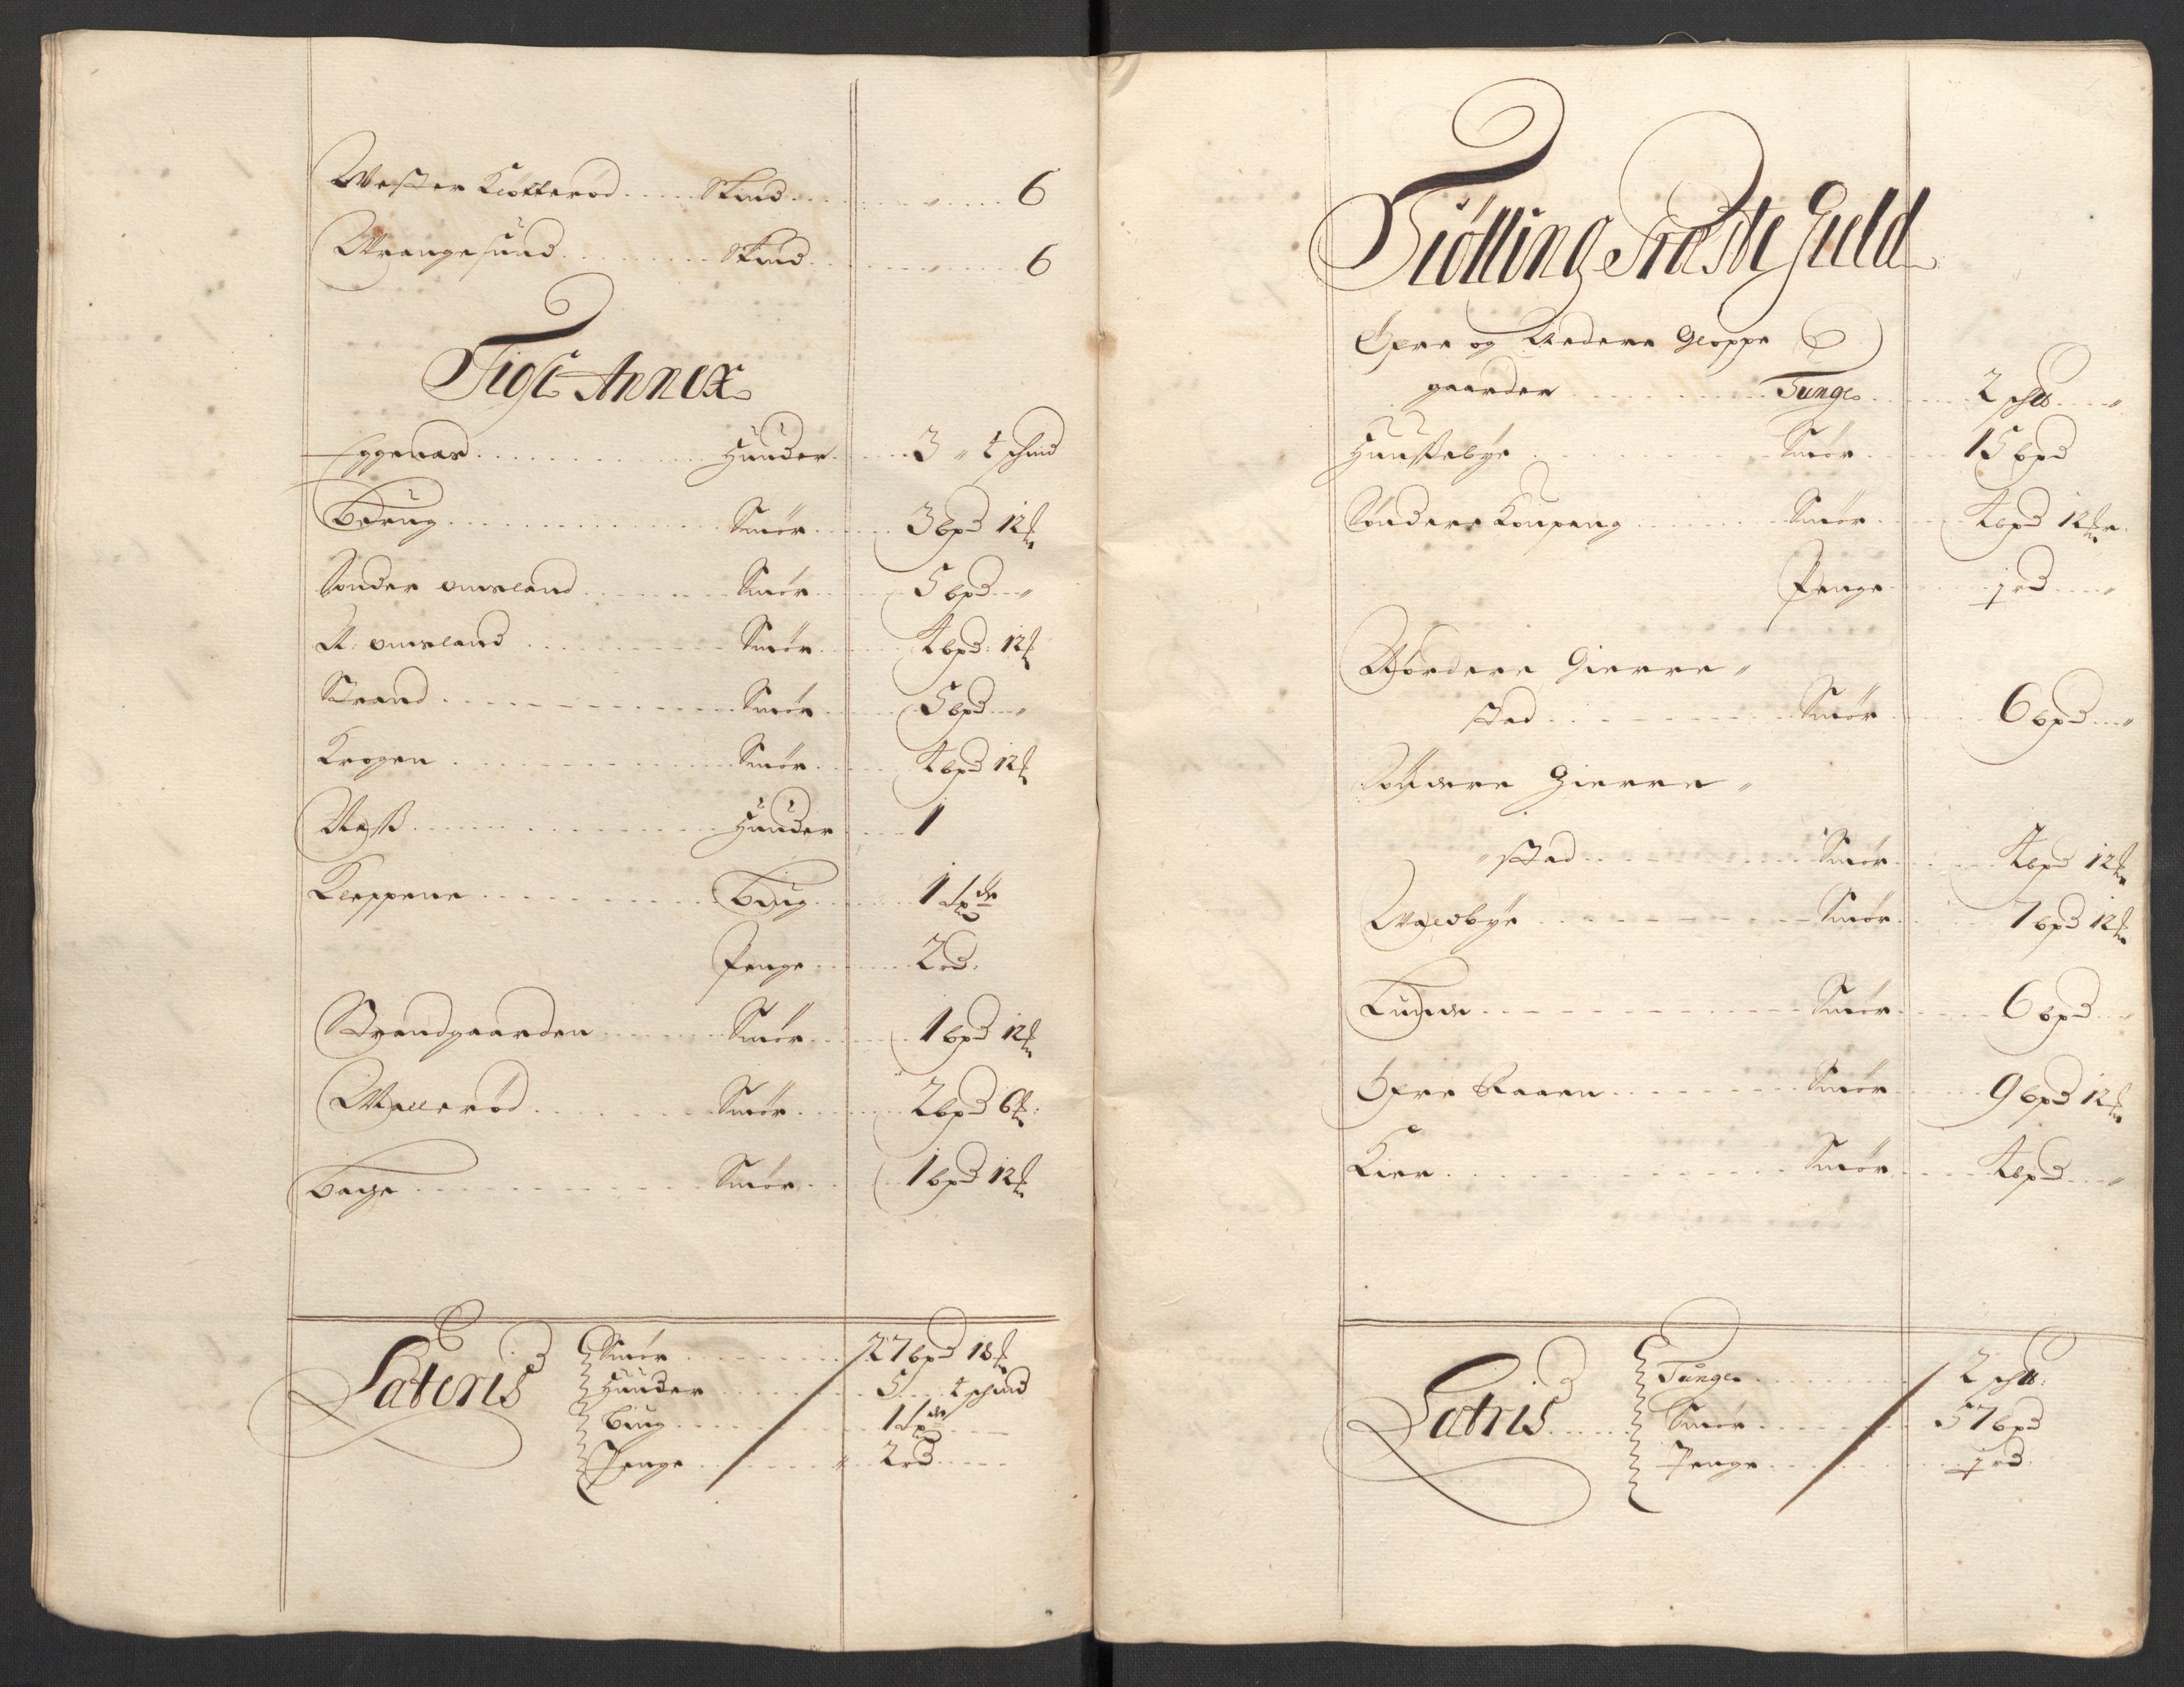 Wester Kiøtterød Skind 6
Wrangesund Skind 6
Tiøse Annex
Eggenæs Huuder 3 " 4 skind
Berug Smør 3 bpd 12
Sønder omsland Smør 5 bpd "
N: omsland Smør 4 bpd: 12
Strand Smør 5 bpd "
Krogen Smør 4 bpd 12
Næss Huuder 1
Kleppene Biug 1
Penge 2 rd:
Strandgaarden Smør 1 bpd 12
Wallerød Smør 2 bpd 6
Bache Smør 1 bpd 12
Lateris Smør 27 bpd 18
Huuder 5 4 skind
Biug 1
Penge 2 rd
Tiølling Præste Gield
Øfre og Nedere Gloppe
gaarder Tunge 2
Huusebÿe Smør 15 bpd
Søndere Koupang Smør 4 bpd 12
Penge j rd "
Nordere Gierre "
stad Smør 6 bpd "
Søndere Gierre "
" stad Smør 4 bpd 12
Waldbÿe Smør 7 bpd 12
Lunde Smør 6 bpd "
Øfre Raaen Smør 9 bpd 12
Kier Smør 4 bpd "
Latris Tunge 2
Smør 57 bpd
Penge j rd: